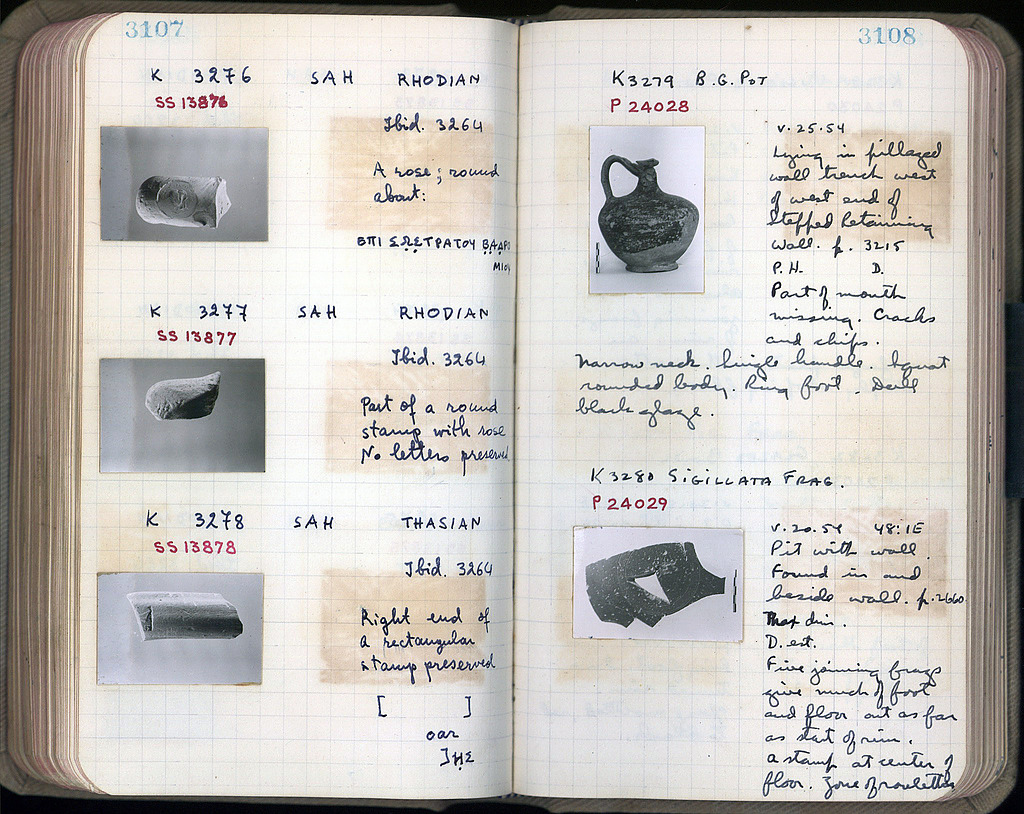 3107
K 3276 SAH RHODIAN
SS 13876
Ibid. 3264
A rose; round
about:
ΕΠΙ ΣΩ̣Σ̣ΤΡΑΤΟΥ Β̣Α̣Δ̣ΡΟ
ΜΙΟΥ
K 3277 SAH RHODIAN
SS 13877
Ibid. 3264
Part of a round
stamp with rose
No letters preserved.
K 3278 SAH THASIAN
SS 13878
Ibid. 3264
Right end of
a rectangular
stamp preserved
[ ]
oar
]Η̣Σ
3108
K3279 B.G. POT
P 24028
V.25.54
Lying in pillaged
wall trench west
of west end of
Stepped Retaining
Wall. p. 3215
P.H. D.
Part of mouth
missing. Cracks
and chips.
Narrow neck. Single handle. Squat
rounded body. Ring foot. Dull
black glaze.
K3280 SIGILLATA FRAG.
P 24029
V.20.54 48:1E
Pit with wall.
Found in and
beside wall. p.2660
Max dim.
D. est.
Five joining frags
give much of foot
and floor out as far
as start of rim.
A stamp at center of
floor. Zone of rouletting